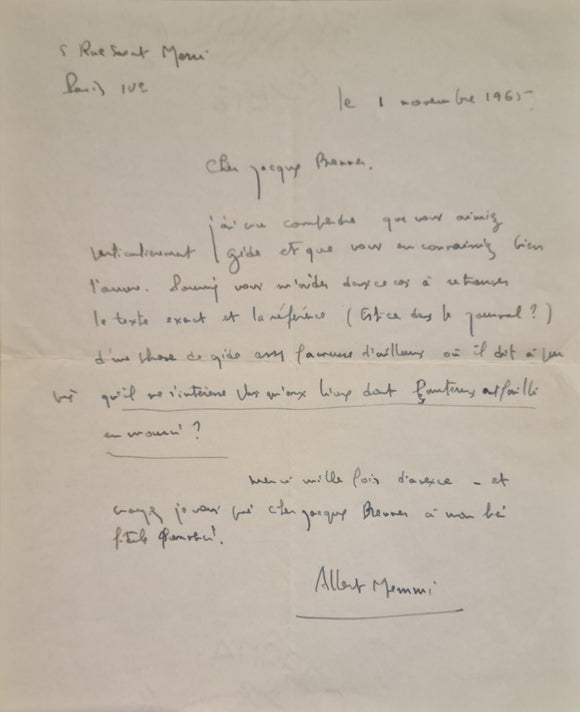 5 Rue Saint Merri
Paris IVe
le 1 novembre 1965
Cher Jacques Brenner,
j'ai cru comprendre que vous aimiez
particulièrement Gide et que vous en connaissiez bien
l'œuvre. Pourriez vous m'aider dans ce cas à retrouver
le texte exact et la référence (Est ce dans le journal ?)
d'une phrase de Gide assez fameuse d'ailleurs où il dit à peu
près qu'il ne s'intéresse plus qu'aux livres dont l'auteur a failli
en mourir ?
merci mille fois d'avance - et
croyez je vous prie cher Jacques Brenner à mon
fidèle
Albert Memmi